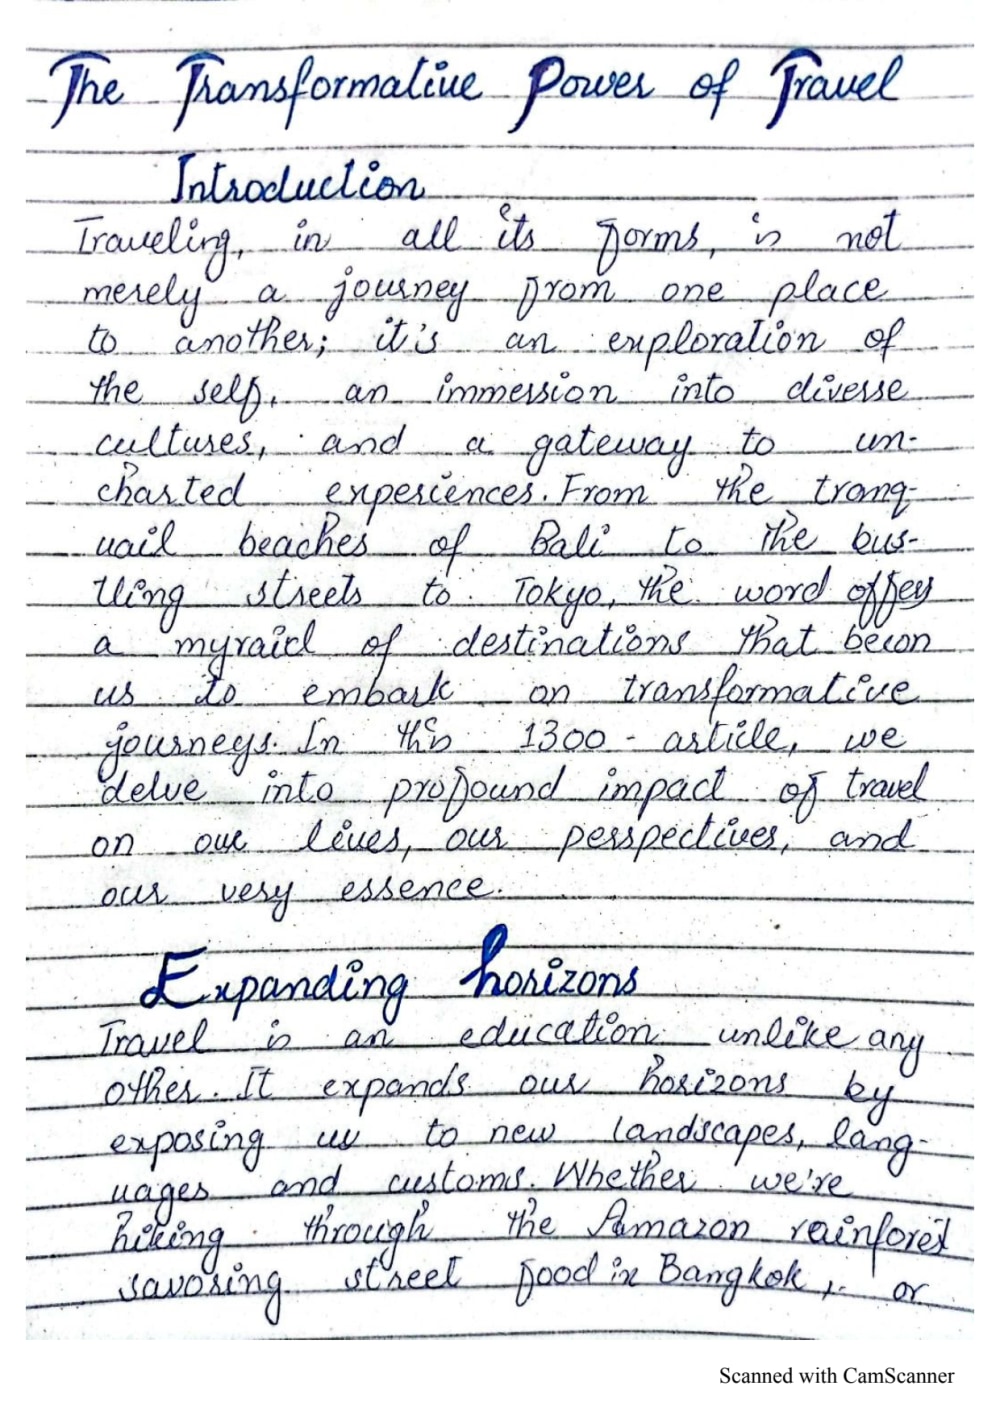 The Transformative Power of Travel
Introduction
Traveling, in all its forms, is not
merely a journey from one place
to another; it's an exploration of
the self, an immersion into diverse
cultures, and a gateway to un-
charted experiences. From the tranq-
uail beaches of Bali to the bus-
tling streets to Tokyo, the word offers
a myraid of destinations that becon
us to embark on transformative
journeys. In this 1300 - article, we
delve into profound impact of travel
on our lives, our perspectives, and
our very essence.
Expanding horizons
Travel is an education unlike any
other. It expands our horizons by
exposing us to new landscapes, lang-
uages and customs. Whether we're
hiking through the Amazon rainforest
savoring street food in Bangkok, or
Scanned with CamScanner